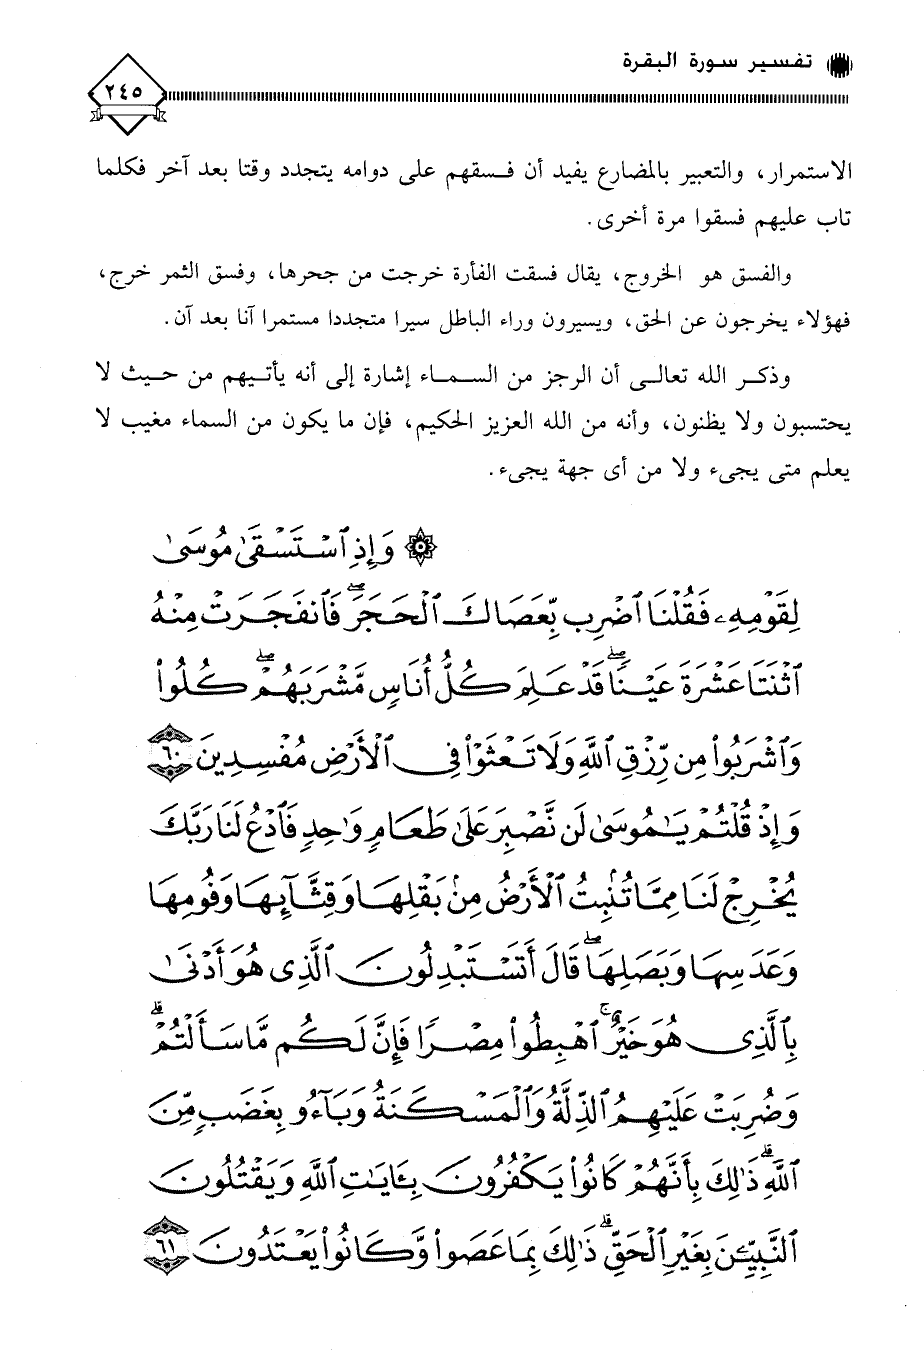 تفسير سورة البقرة
٢٤٥
الاستمرار، والتعبير بالمضارع يفيد أن فسقهم على دوامه يتجدد وقتا بعد آخر فكلما
تاب عليهم فسقوا مرة أخرى.
والفسق هو الخروج، يقال فسقت الفأرة خرجت من جحرها، وفسق الثمر خرج،
فهؤلاء يخرجون عن الحق، ويسيرون وراء الباطل سيرا متجددا مستمرا آنا بعد آن.
وذكر الله تعالى أن الرجز من السماء إشارة إلى أنه يأتيهم من حيث لا
يحتسبون ولا يظنون، وأنه من الله العزيز الحكيم، فإن ما يكون من السماء مغيب لا
يعلم متى يجىء ولا من أى جهة يجىء.
۞ وَإِذِ ٱسْتَسْقَىٰ مُوسَىٰ
لِقَوْمِهِۦ فَقُلْنَا ٱضْرِب بِّعَصَاكَ ٱلْحَجَرَۖ فَٱنفَجَرَتْ مِنْهُ
ٱثْنَتَا عَشْرَةَ عَيْنًاۖ قَدْ عَلِمَ كُلُّ أُنَاسٍ مَّشْرَبَهُمْۖ كُلُوا۟
وَٱشْرَبُوا۟ مِن رِّزْقِ ٱللَّهِ وَلَا تَعْثَوْا۟ فِى ٱلْأَرْضِ مُفْسِدِينَ ٦٠
وَإِذْ قُلْتُمْ يَـٰمُوسَىٰ لَن نَّصْبِرَ عَلَىٰ طَعَامٍ وَٰحِدٍ فَٱدْعُ لَنَا رَبَّكَ
يُخْرِجْ لَنَا مِمَّا تُنۢبِتُ ٱلْأَرْضُ مِنۢ بَقْلِهَا وَقِثَّآئِهَا وَفُومِهَا
وَعَدَسِهَا وَبَصَلِهَاۖ قَالَ أَتَسْتَبْدِلُونَ ٱلَّذِى هُوَ أَدْنَىٰ
بِٱلَّذِى هُوَ خَيْرٌۚ ٱهْبِطُوا۟ مِصْرًا فَإِنَّ لَكُم مَّا سَأَلْتُمْۗ
وَضُرِبَتْ عَلَيْهِمُ ٱلذِّلَّةُ وَٱلْمَسْكَنَةُ وَبَآءُو بِغَضَبٍ مِّنَ
ٱللَّهِۗ ذَٰلِكَ بِأَنَّهُمْ كَانُوا۟ يَكْفُرُونَ بِـَٔايَـٰتِ ٱللَّهِ وَيَقْتُلُونَ
ٱلنَّبِيِّـۧنَ بِغَيْرِ ٱلْحَقِّۗ ذَٰلِكَ بِمَا عَصَوا۟ وَّكَانُوا۟ يَعْتَدُونَ ٦١